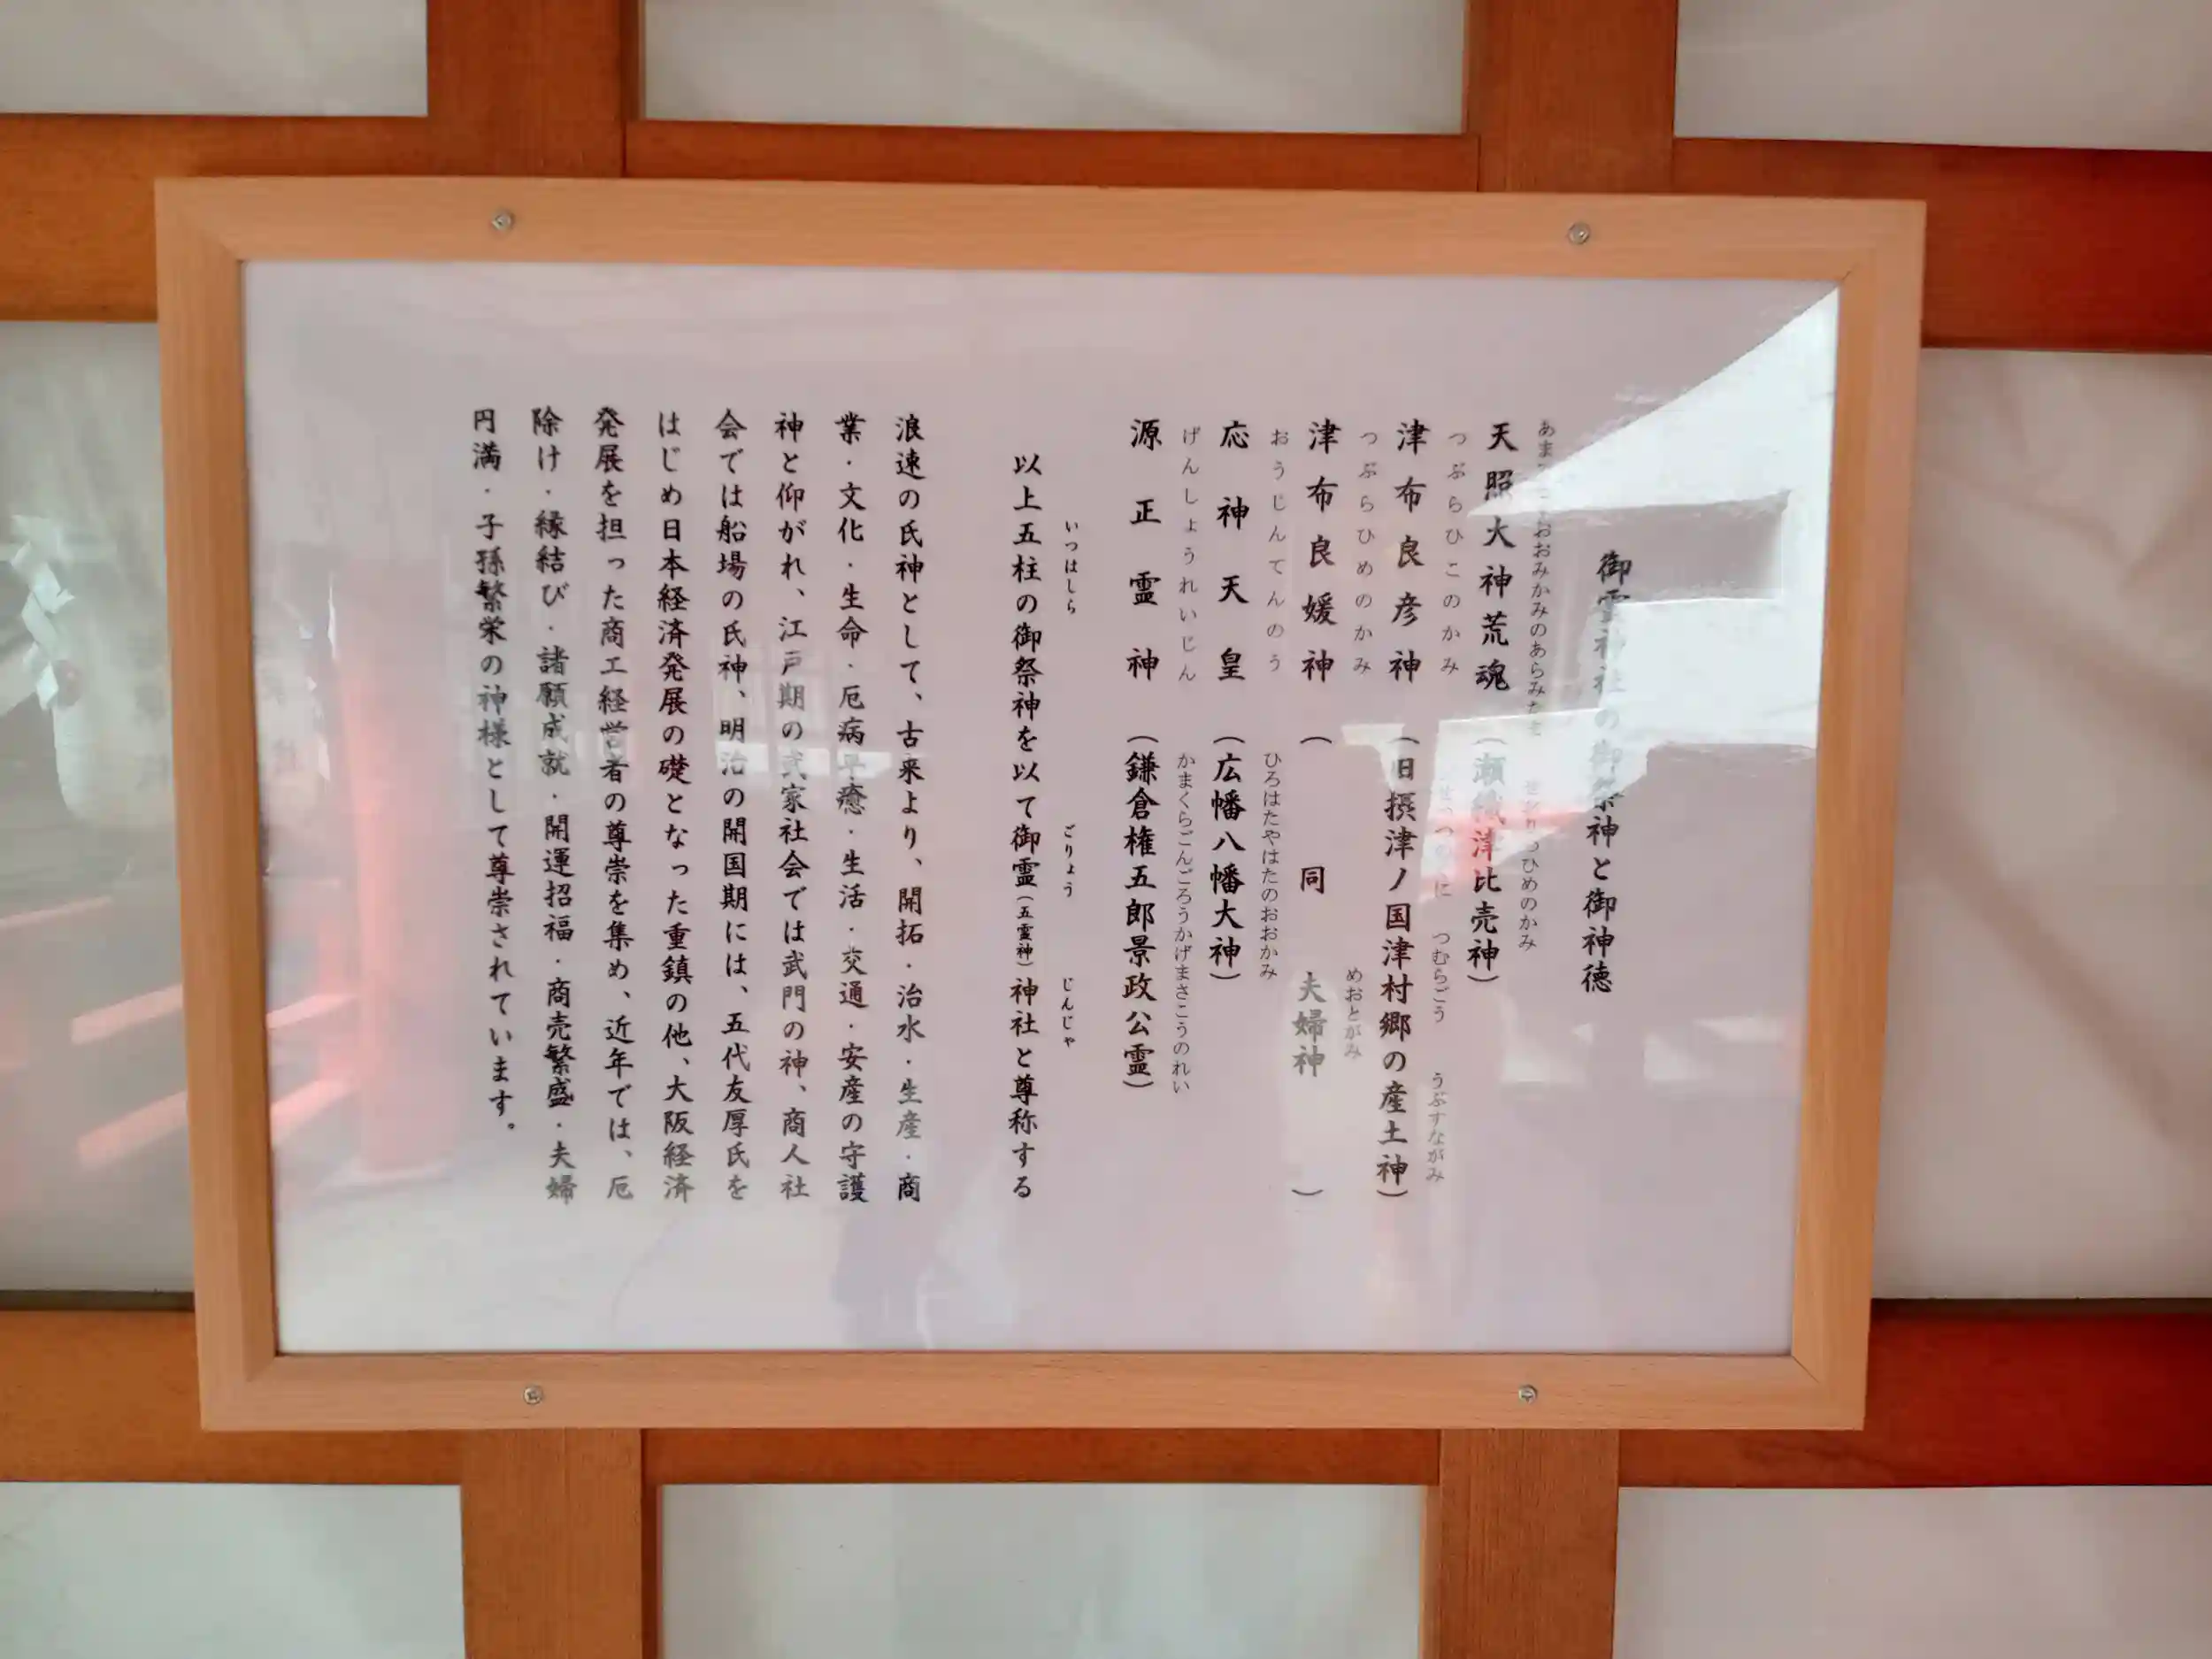 御霊神社の御祭神と御神徳
天照大神荒魂（瀬織津比売神）
おおみかみのあらみたま ひめのかみ
津布良彦神（旧摂津ノ国津村郷の産土神）
つぶらひこのかみ つむらごう うぶすながみ
津布良媛神（同 夫婦神）
つぶらひめのかみ めおとがみ
応神天皇（広幡八幡大神）
おうじんてんのう ひろはたやはたのおおかみ
源正霊神（鎌倉権五郎景政公霊）
げんしょうれいじん かまくらごんごろうかげまさこうのれい
以上五柱の御祭神を以て御霊（五霊神）神社と尊称する
いつはしら ごりょう じんじゃ
浪速の氏神として、古来より、開拓・治水・生産・商
業・文化・生命・厄病平癒・生活・交通・安産の守護
神と仰がれ、江戸期の武家社会では武門の神、商人社
会では船場の氏神、明治の開国期には、五代友厚氏を
はじめ日本経済発展の礎となった重鎮の他、大阪経済
発展を担った商工経営者の尊崇を集め、近年では、厄
除け・縁結び・諸願成就・開運招福・商売繁盛・夫婦
円満・子孫繁栄の神様として尊崇されています。